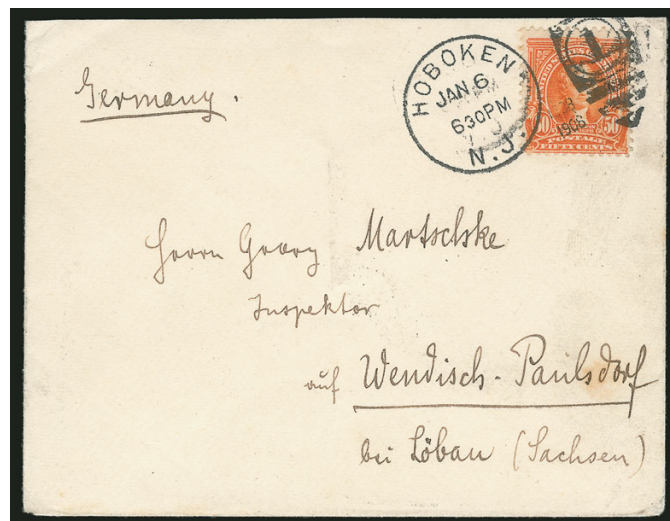 Germany.
HOBOKEN
JAN 6
630PM
N.J.
1908
50 50
POSTAGE
FIFTY CENTS
Herrn Georg Martschke
Inspektor
auf Wendisch-Paulsdorf
bei Löbau (Sachsen)